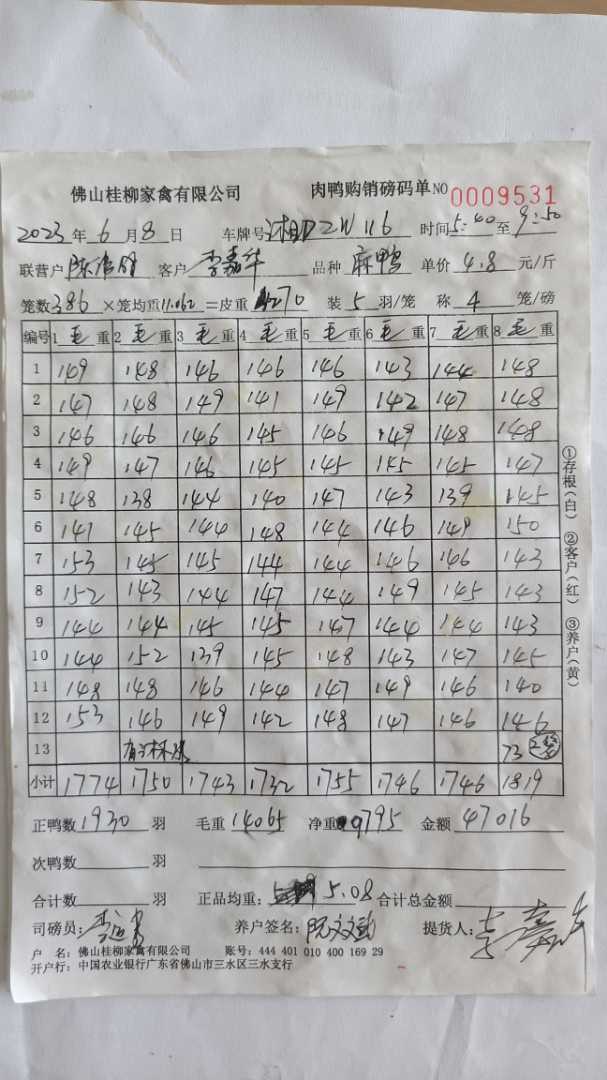 佛山桂柳家禽有限公司 肉鸭购销磅码单 NO 0009531
2023 年 6 月 8 日 车牌号 湘D2W116 时间 5:40 至 9:50
联营户 客户 李嘉华 品种 麻鸭 单价 4.8 元/斤
笼数 386 ×笼均重 11.062 =皮重 4270 装 5 羽/笼 称 4 笼/磅
编号 1 毛 重 2 毛 重 3 毛 重 4 毛 重 5 毛 重 6 毛 重 7 毛 重 8 毛 重
1 149 148 146 146 146 143 144 148
2 147 148 149 141 149 142 147 148
3 146 146 146 145 146 149 148 148
4 149 147 146 145 145 145 145 147
5 148 138 144 140 147 143 139 145
6 141 145 144 148 144 146 149 150
7 153 145 145 144 144 146 146 143
8 152 143 144 147 144 149 145 143
9 144 144 145 145 147 144 144 143
10 144 152 139 145 148 143 147 145
11 148 148 146 144 147 149 146 140
12 153 146 149 142 148 147 146 146
13 73
小计 1774 1750 1743 1732 1755 1746 1746 1819
①存根(白) ②客户(红) ③养户(黄)
正鸭数 1930 羽 毛重 14065 净重 9795 金额 47016
次鸭数 羽
合计数 羽 正品均重: 5.08 合计总金额
司磅员: 养户签名: 提货人:
户 名: 佛山桂柳家禽有限公司 账号: 444 401 010 400 169 29
开户行: 中国农业银行广东省佛山市三水区三水支行